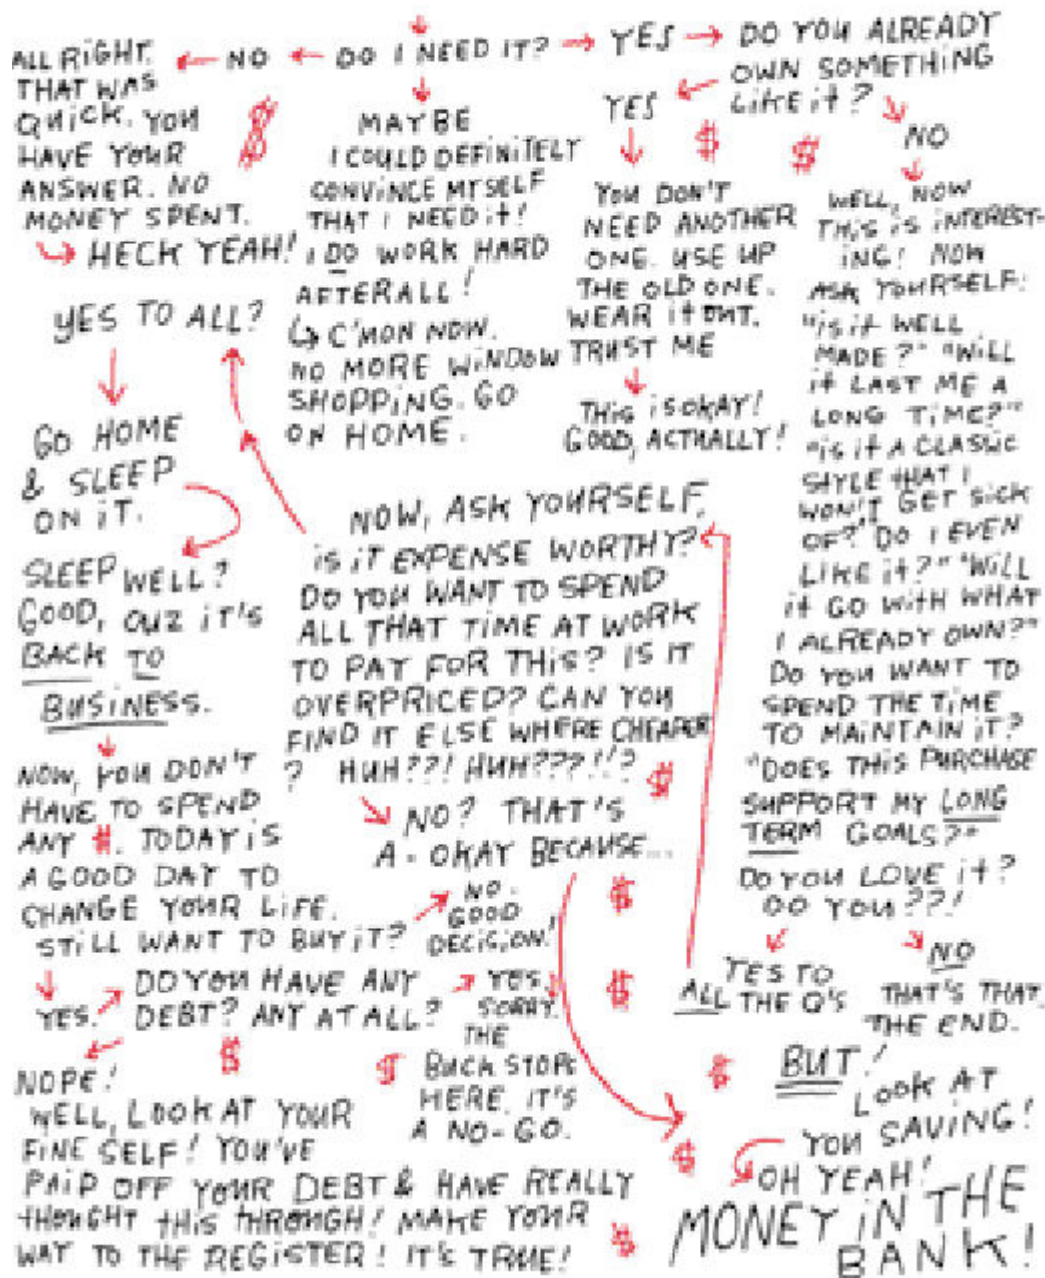 DO I NEED IT?
NO
ALL RIGHT.
THAT WAS
QUICK. YOU
HAVE YOUR
ANSWER. NO
MONEY SPENT.
HECK YEAH!
MAYBE
I COULD DEFINITELY
CONVINCE MYSELF
THAT I NEED it!
I DO WORK HARD
AFTERALL!
C'MON NOW.
NO MORE WINDOW
SHOPPING. GO
ON HOME.
YES
DO YOU ALREADY
OWN SOMETHING
LIKE it?
YES
YOU DON'T
NEED ANOTHER
ONE. USE UP
THE OLD ONE.
WEAR it OUT.
TRUST ME
THIS IS OKAY!
GOOD, ACTUALLY!
NO
WELL, NOW
THIS IS INTEREST-
ING! NOW
ASK YOURSELF:
"is it WELL
MADE?" "WILL
it LAST ME A
LONG TIME?"
"is it A CLASSIC
STYLE tHAT I
WON'T GET SICK
OF?" DO I EVEN
LIKE it?" "WILL
it GO WitH WHAT
I ALREADY OWN?"
DO YOU WANT TO
SPEND THE TIME
TO MAINTAIN IT?
"DOES THIS PURCHASE
SUPPORT MY LONG
TERM GOALS?"
DO YOU LOVE it?
DO YOU??!
YES TO
ALL THE Q'S
NO
THAT'S THAT.
THE END.
BUT!
LOOK AT
YOU SAVING!
OH YEAH!
MONEY IN THE
BANK!
NOW, ASK YOURSELF,
is it EXPENSE WORTHY?
DO YOU WANT TO SPEND
ALL THAT TIME AT WORK
TO PAY FOR THIS? IS IT
OVERPRICED? CAN YOU
FIND IT ELSE WHERE CHEAPER
? HUH??! HUH???!!?
NO? THAT'S
A-OKAY BECAUSE...
YES TO ALL?
GO HOME
& SLEEP
ON iT.
SLEEP WELL?
GOOD, CUZ iT'S
BACK TO
BUSINESS.
NOW, YOU DON'T
HAVE TO SPEND
ANY #. TODAY IS
A GOOD DAY TO
CHANGE YOUR LIFE.
STILL WANT TO BUY iT?
NO.
GOOD
DECISION!
YES.
DO YOU HAVE ANY
DEBT? ANY AT ALL?
YES.
SORRY.
THE
BUCK STOPS
HERE. IT'S
A NO-GO.
NOPE!
WELL, LOOK AT YOUR
FINE SELF! YOU'VE
PAID OFF YOUR DEBT & HAVE REALLY
tHOUGHT tHIS tHROUGH! MAKE YOUR
WAY TO THE REGISTER! IT'S TRUE!